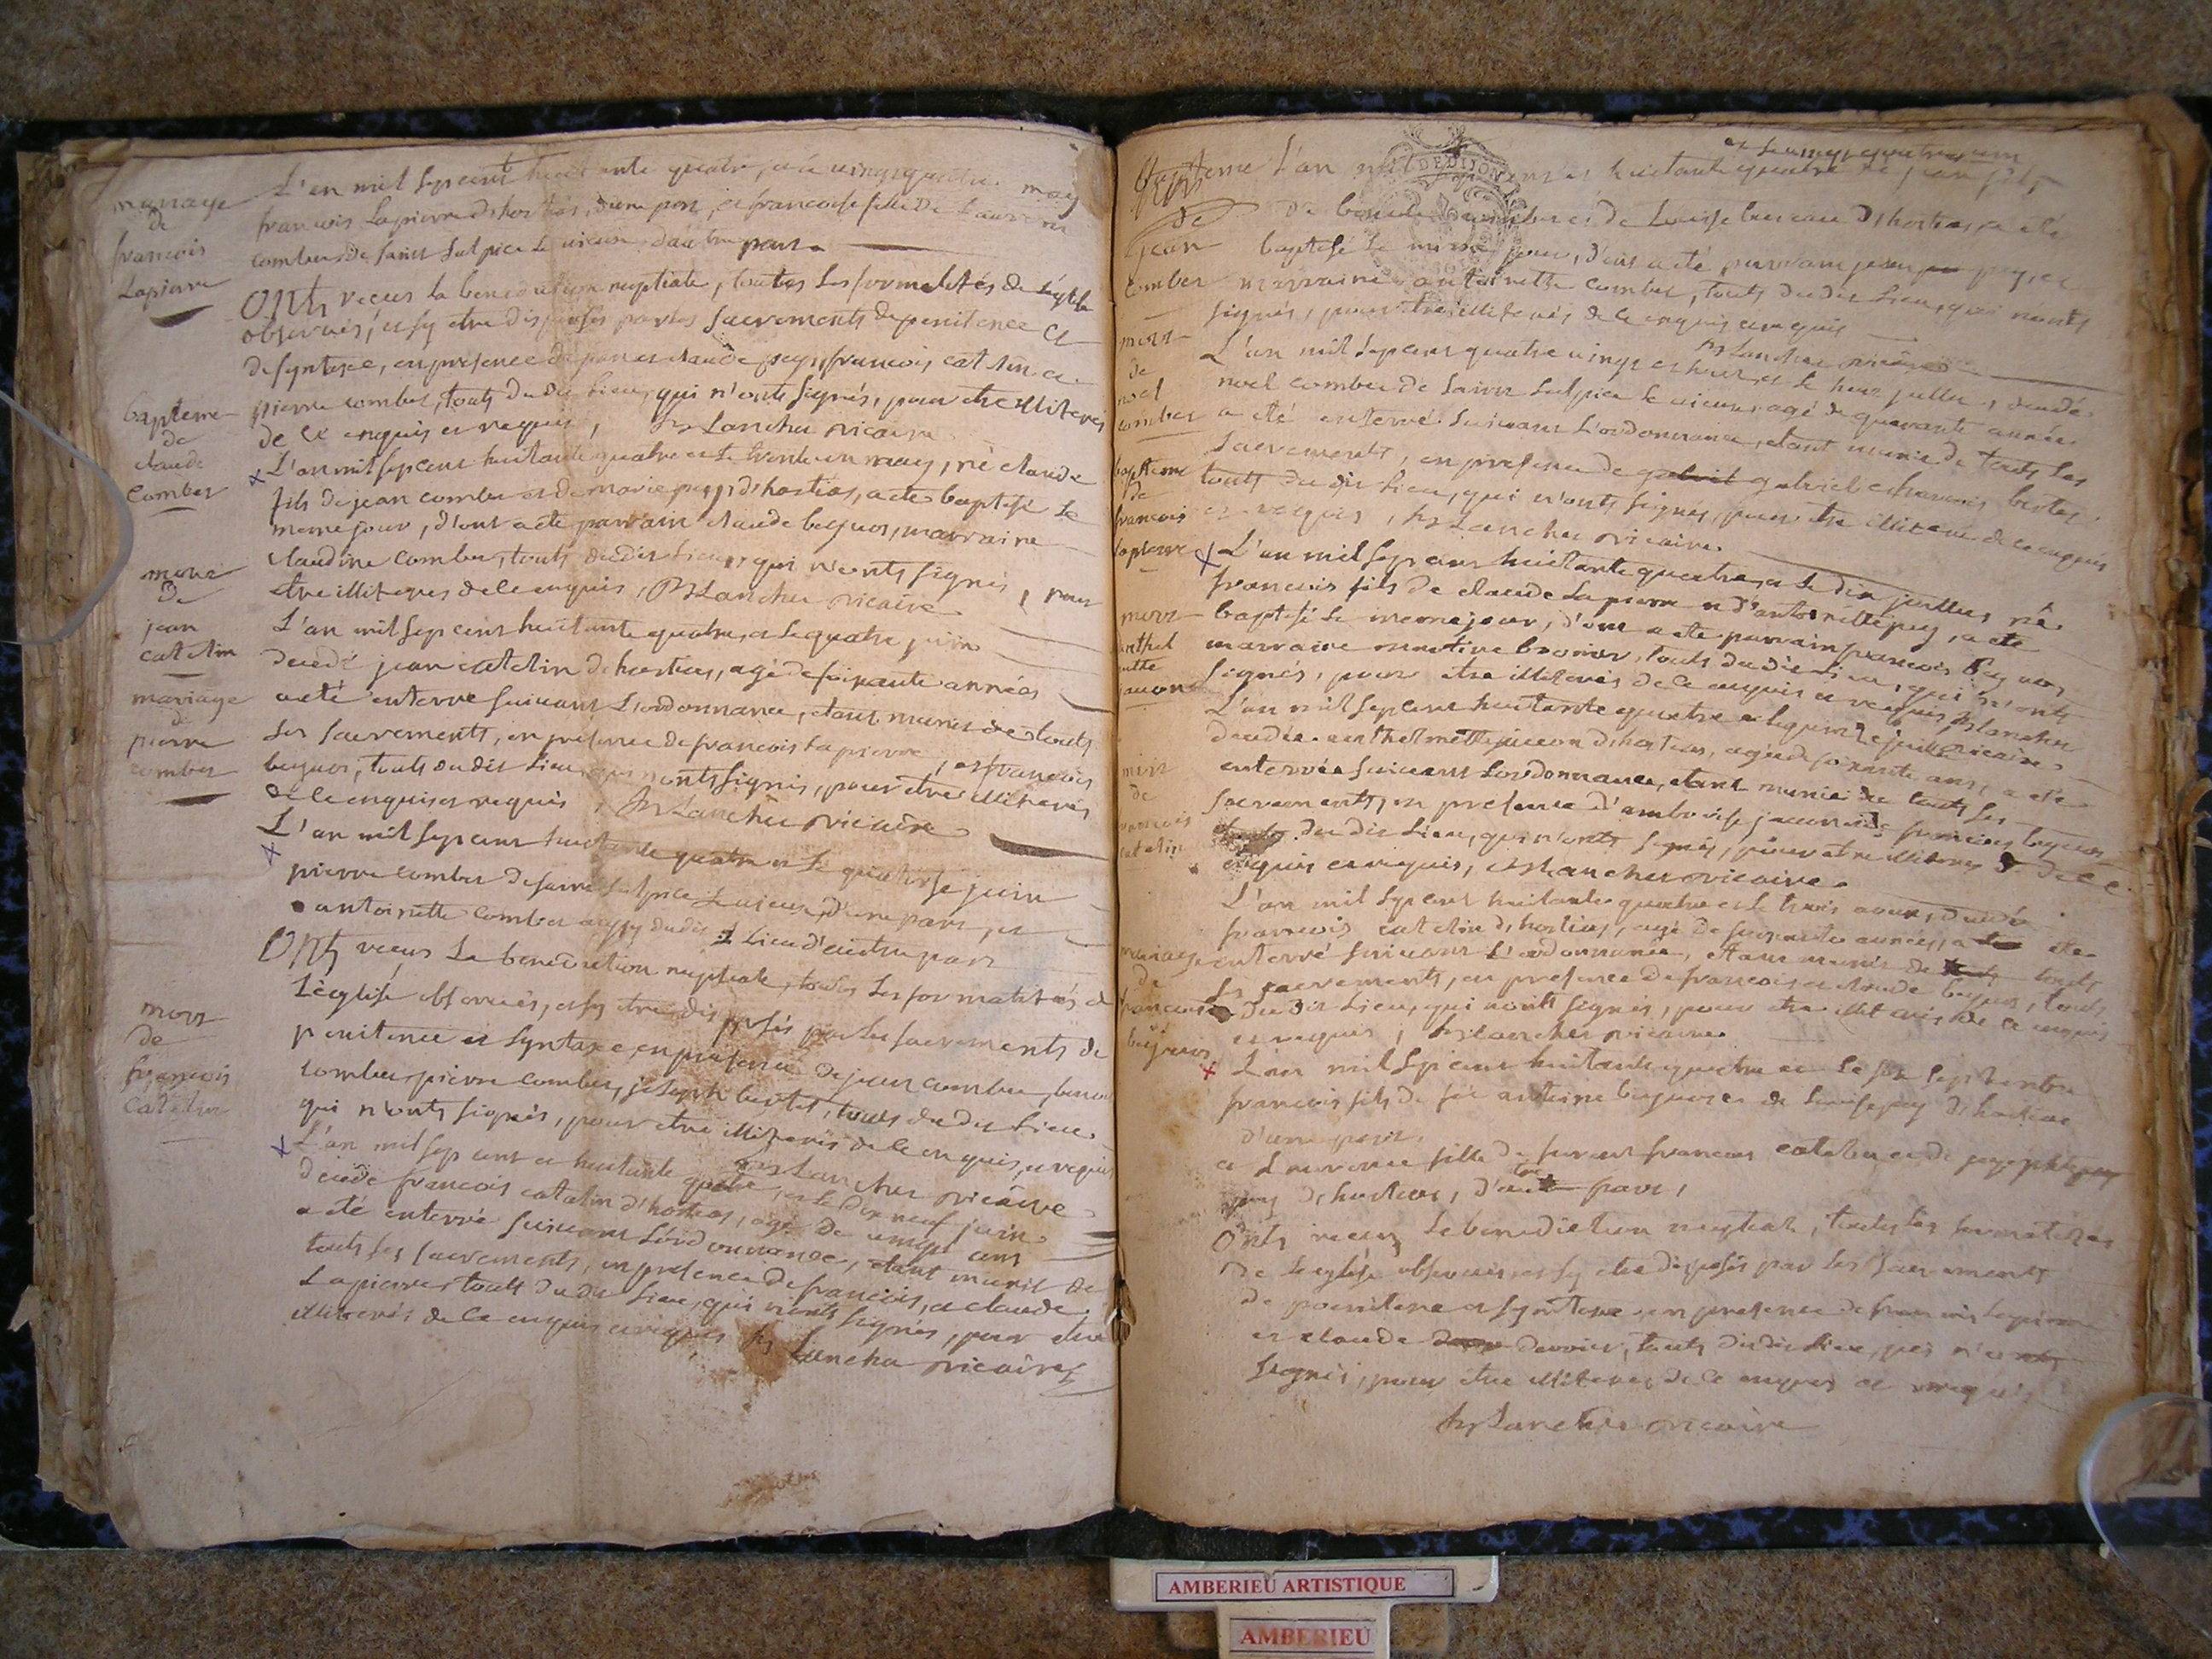 mariage
de
francois
Lapierre
L'an mil sept cent huitante quatre, et le vingt quatre may
francois Lapierre d'hostias, d'une part, et francoise fille de Laurent
combet de saint sulpice le vieux, d'autre part.
Onts reçus la benediction nuptiale, toutes les formalités de l'église
observées, et sy etre disposés par les sacrements de penitence et
de syntaxe, en presence de pierre et claude puy, francois catelin et
pierre combet, touts du dit lieu, qui n'onts signés, pour etre illiterés
de ce enquis et requis, Lancher vicaire
bapteme
de
claude
combet
L'an mil sept cent huitante quatre et le trente un may, né claude
fils de jean combet et de marie puy, d'hostias, a eté baptisé le
meme jour, d'ont a eté parrain claude beguos, marraine
claudine combet, touts du dit lieu, qui n'onts signés, pour
etre illiteres de ce enquis, Lancher vicaire
mort
de
jean
catelin
L'an mil sept cent huitante quatre, et le quatre juin
decedé jean catelin d'hostias, agé de soixante années
a eté enterré suivant l'ordonnance, etant munis de touts
les sacrements, en presence de francois Lapierre, et francois
beguos, touts du dit lieu, qui n'onts signés, pour etre illiterés
de ce enquis et requis, Lancher vicaire
mariage
de
pierre
combet
L'an mil sept cent huitante quatre et le quatorse juin
pierre combet de saint sulpice le vieux, d'une part, et
antoinette combet aussy du dit lieu d'autre part
Onts reçus la benediction nuptiale, toutes les formalités de
l'église observées, et sy etre disposés par les sacrements de
penitence et syntaxe, en presence de jean combet, benoit
combet, pierre combet, joseph bertet, touts du dit lieu
qui n'onts signés, pour etre illiterés de ce enquis, et requis
Lancher vicaire
mort
de
francois
catelin
L'an mil sept cent et huitante quatre, et le dix neuf juin
decedé francois catelin d'hostias, agé de vingt ans
a eté enterré suivant l'ordonnance, etant munis de
touts les sacrements, en presence de francois, et claude
Lapierre, touts du dit lieu, qui n'onts signés, pour etre
illiterés de ce enquis et requis Lancher vicaire
DE DIJON
Bapteme
de
jean
combet
et le vingt quatre juin
L'an mil et huitante quatre né jean fils
de benoit combet et de Louise d'hostias, a eté
baptisé le meme jour, d'ont a eté parrain jean puy, et
marraine antoinette combet, touts du dit lieu, qui n'onts
signés, pour etre illiterés de ce enquis et requis
Lancher vicaire
mort
de
noel
combet
L'an mil sept cent quatre vingt et le huit juillet, decedé
noel combet de saint sulpice le vieux, agé de quarante années
a eté enterré suivant l'ordonnance, etant munis de touts les
sacrements, en presence de gabriel et francois bertet
touts du dit lieu, qui n'onts signés, pour etre illiteré de ce enquis
et requis, Lancher vicaire.
bapteme
de
francois
lapierre
L'an mil sept cent huitante quatre, et le dix juillet, né
francois fils de claude Lapierre et d'antoinette puy, a eté
baptisé le meme jour, d'ont a eté parrain francois beguos
marraine, touts du dit lieu, qui n'onts
signés, pour etre illiterés de ce enquis et requis, Lancher
vicaire
mort
L'an mil sept cent huitante quatre et le quinze juillet
decedée d'hostias, agée de soixante ans, a eté
enterrée suivant l'ordonnance, etant munie de touts les
sacrements, en presence d'amboise et francois beguos
du dit lieu, qui n'onts signés, pour etre illiteres de ce
enquis et requis, Lancher vicaire.
mort
de
francois
catelin
L'an mil sept cent huitante quatre et le trois aout, decedé
francois catelin d'hostias, agé de soixante années, a eté
enterré suivant l'ordonnance, etant munis de touts
les sacrements, en presence de francois et claude beguos, touts
du dit lieu, qui n'onts signés, pour etre illiterés de ce enquis
et requis, Lancher vicaire
mariage
de
francois
beguos
L'an mil sept cent huitante quatre et le septembre
francois fils de feu antoine beguos et de Louise puy d'hostias
d'une part,
et Laurence fille de francois catelin et de
puy d'hostias, d'autre part,
Onts reçus la benediction nuptiale, toutes les formalités
de l'eglise observées, et sy etre disposés par les sacrements
de penitence et syntaxe, en presence de francois Lapierre
et claude, touts du dit lieu, qui n'onts
signés, pour etre illiteres de ce enquis et requis
Lancher vicaire
AMBERIEU ARTISTIQUE
AMBERIEU